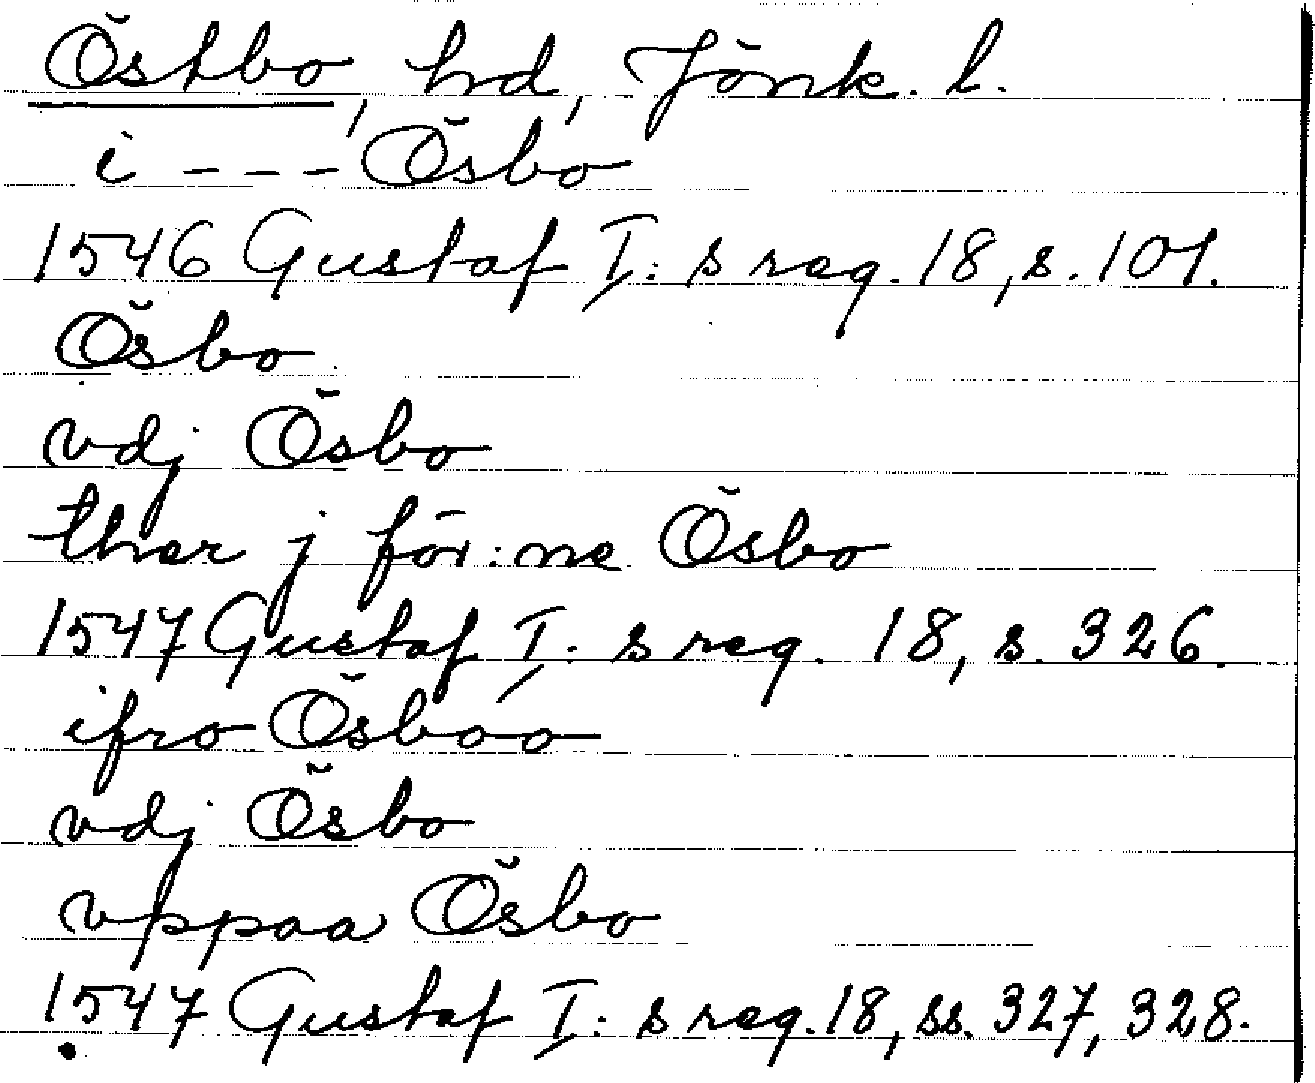 Östbo, hd, Jönk. l.
i - - - Ösbo
1546 Gustaf I: s reg. 18, s. 101.
Ösbo
vdj Ösbo
ther j för:ne Ösbo
1547 Gustaf I: s reg. 18, s. 326.
ifro Ösboo
vdj Ösbo
vppaa Ösbo
1547 Gustaf I: s reg. 18, ss. 327, 328.